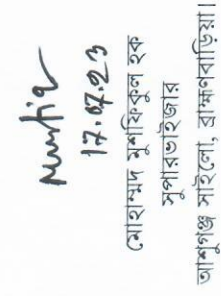 17.07.23
মোহাম্মদ মুশফিকুল হক
সুপারভাইজার
আশুগঞ্জ সাইলো, ব্রাহ্মণবাড়িয়া।